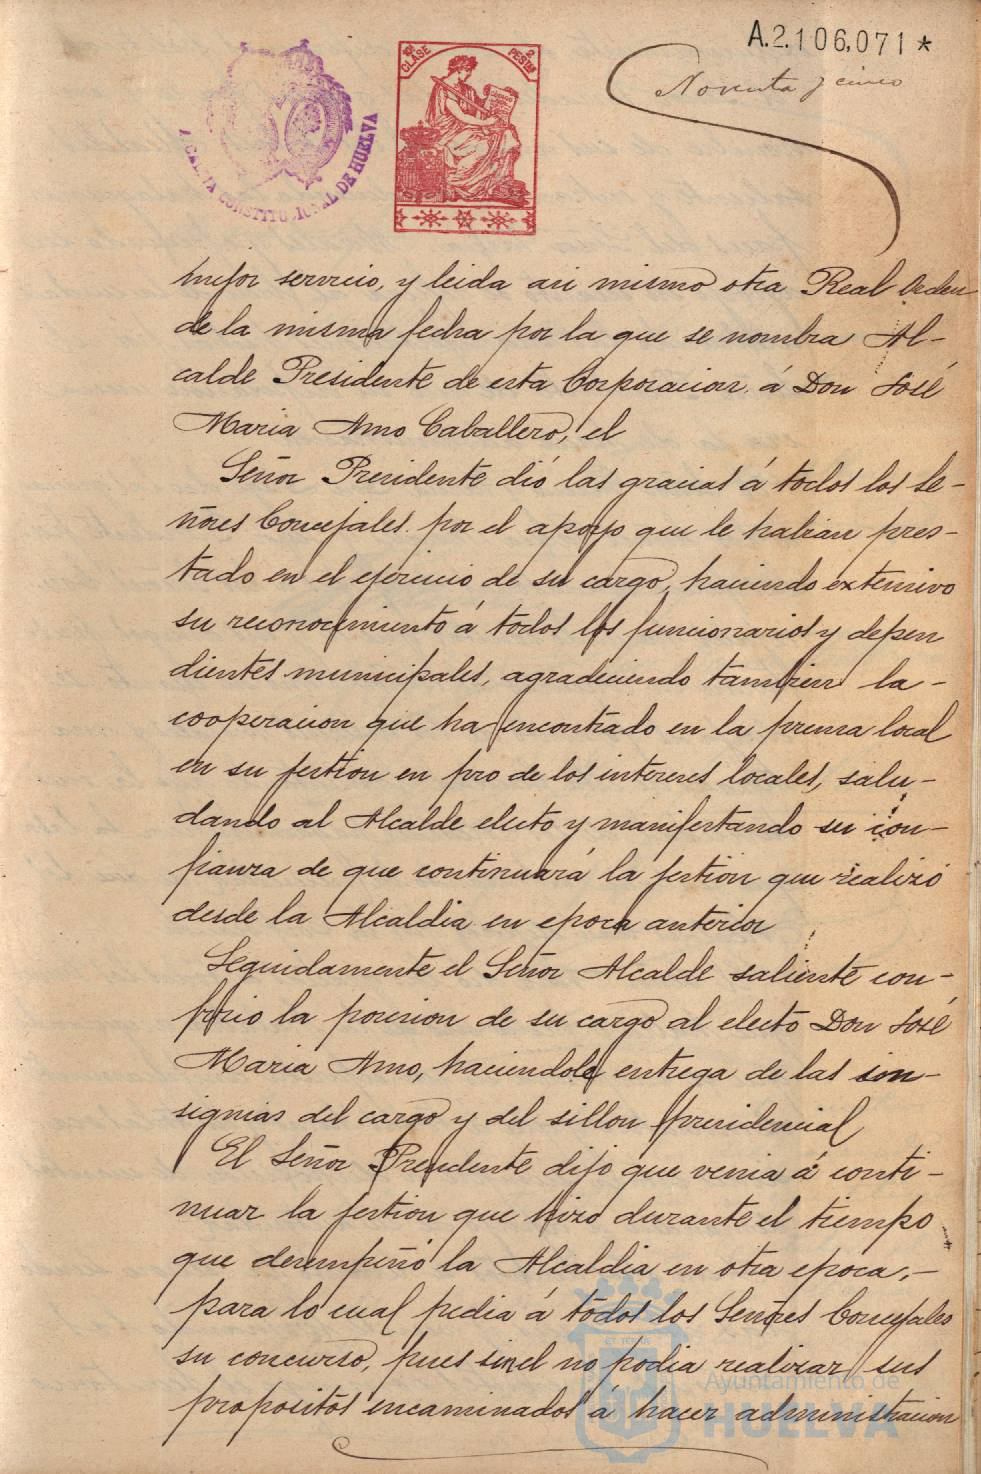 A.2.106,071*
Noventa y cinco
10ª CLASE
2 PESETAS
ALCALDIA CONSTITUCIONAL DE HUELVA
mejor servicio, y leida asi mismo otra Real Orden
de la misma fecha por la que se nombra Al-
calde Presidente de esta Corporacion á Don José
Maria Amo Caballero, el
Señor Presidente dió las gracias á todos los Se-
ñores Concejales por el apoyo que le habian pres-
tado en el ejercicio de su cargo, haciendo extensivo
su reconocimiento á todos los funcionarios y depen
dientes municipales, agradeciendo tambien la-
cooperacion que ha encontrado en la prensa local
en su gestion en pro de los intereses locales, salu-
dando al Alcalde electo y manifestando su con-
fianza de que continuará la gestion que realizó
desde la Alcaldia en epoca anterior
Seguidamente el Señor Alcalde saliente con-
firio la posesion de su cargo al electo Don José
Maria Amo, haciendole entrega de las in-
signias del cargo y del sillon presidencial
El Señor Presidente dijo que venia á conti-
nuar la gestion que hizo durante el tiempo
que desempeñó la Alcaldia en otra epoca,-
para lo cual pedia á todos los Señores Concejales
su concurso, pues sin el no podia realizar sus
propositos encaminados á hacer administracion
Ayuntamiento de
HUELVA